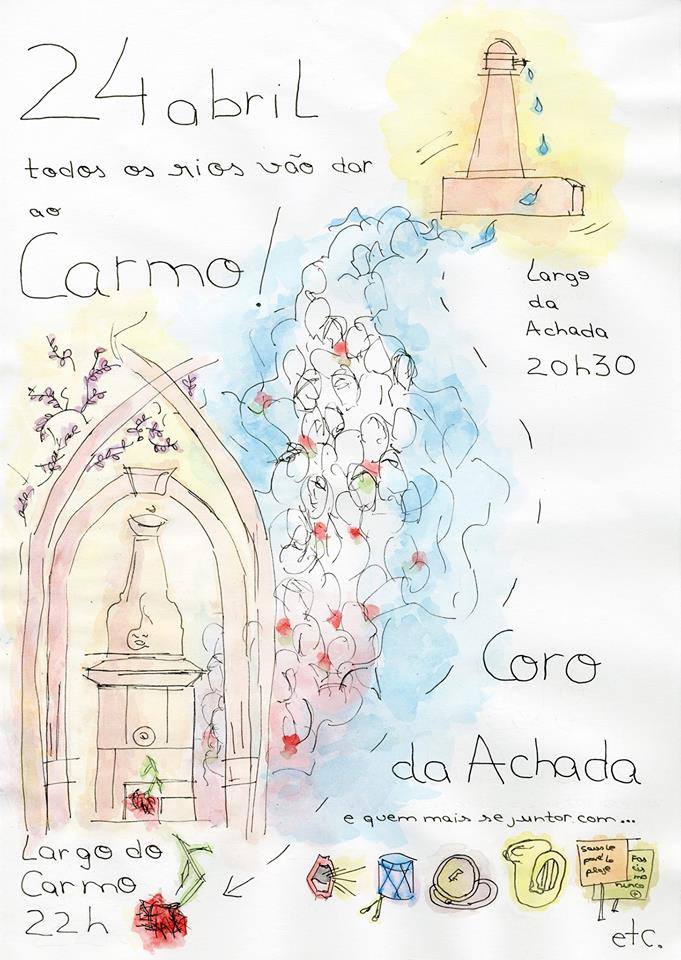 24 abril
todos os rios vão dar
ao
Carmo!
Largo
da
Achada
20h30
Coro
da Achada
e quem mais se juntar com...
Largo do
Carmo
22h
sous le
pavé la
mo
nunca
+
etc.